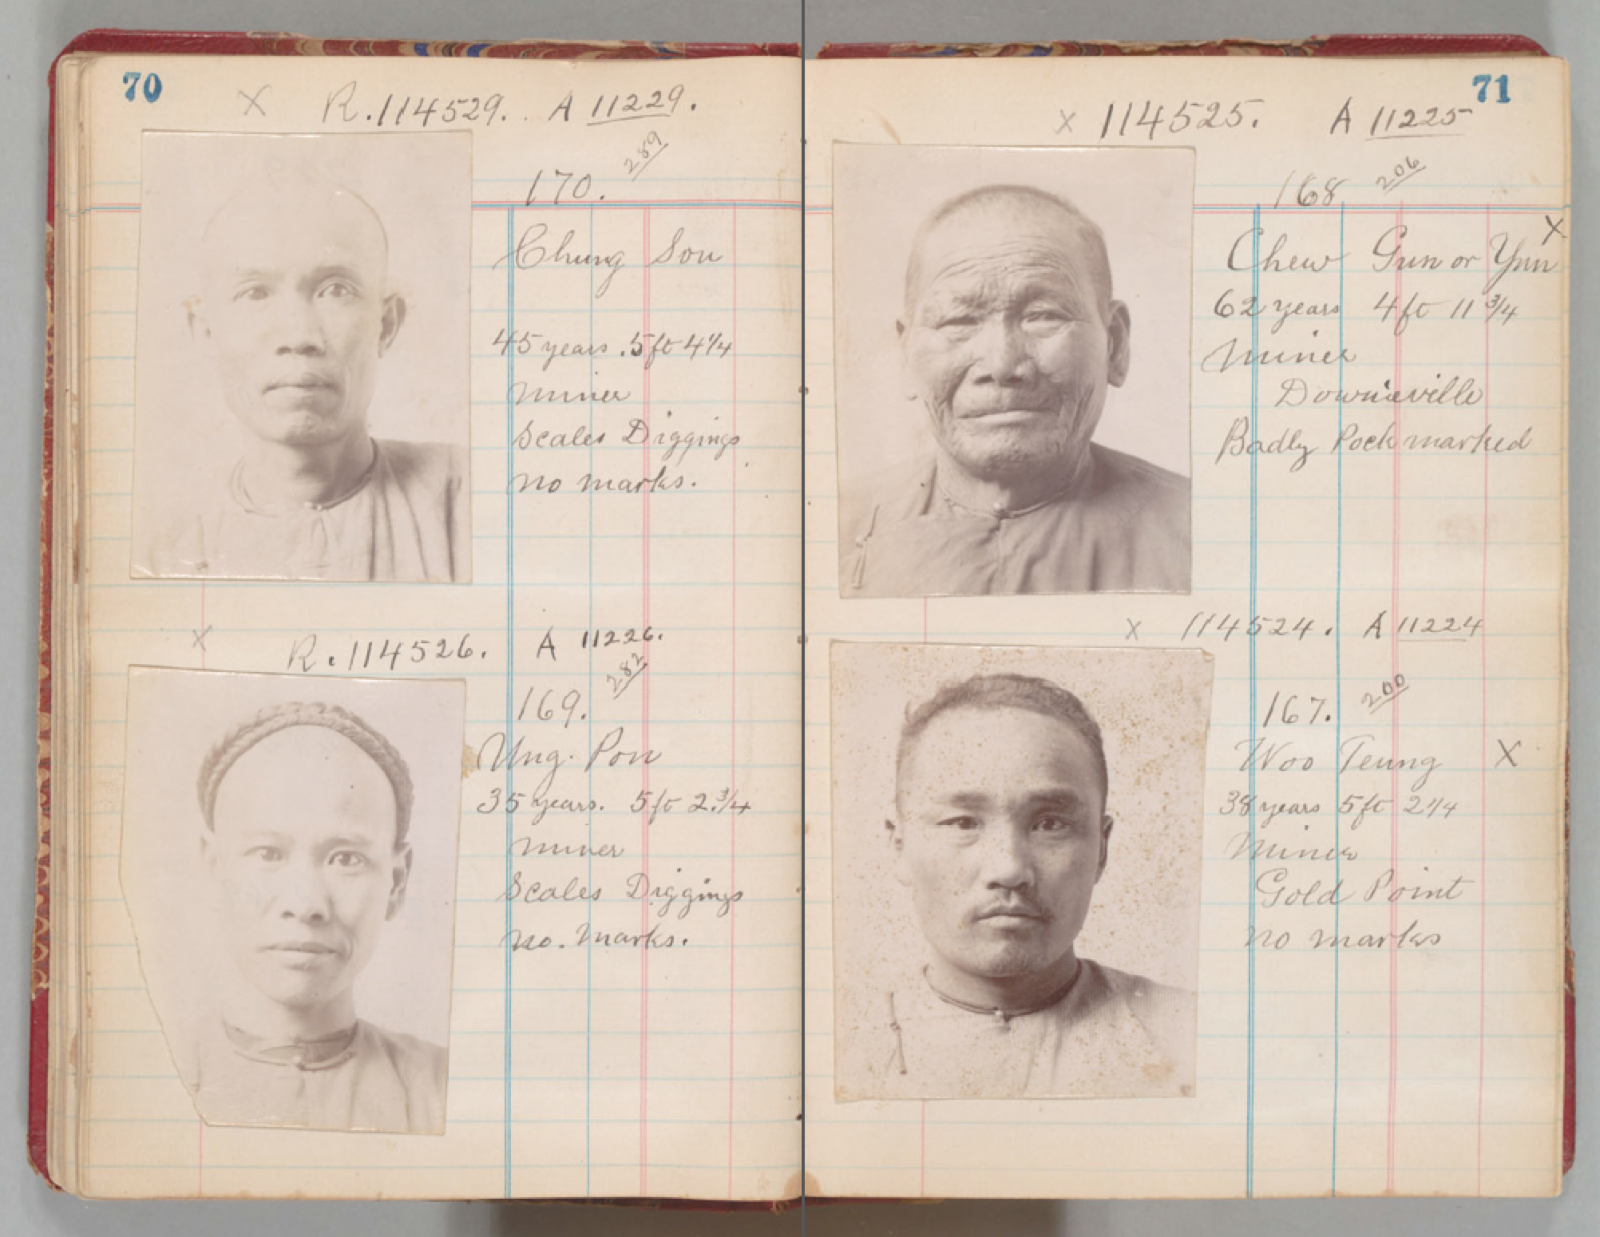 70
X R.114529. A 11229.
289
170.
Chung Son
45 years. 5 ft 4 1/4
Miner
Scales Diggings
no marks.
X R.114526. A 11226.
282
169.
Ung. Pon
35 years. 5 ft 2.3/4
Miner
Scales Diggings
no. marks.
71
X 114525. A 11225
206
168
X
Chew Gun or Yun
62 years 4 ft 11 3/4
Miner
Downieville
Badly Pock marked
X 114524. A 11224
200
167.
Woo Teung X
38 years 5 ft 2 1/4
Miner
Gold Point
no marks